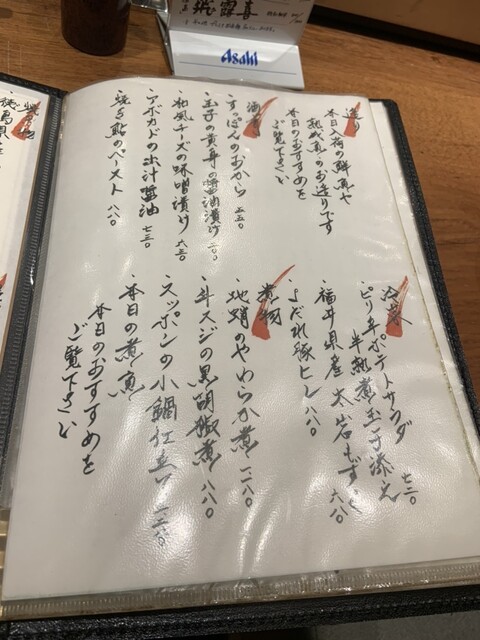 飛露喜
Asahi
造り
本日入荷の鮮魚や
熟成魚のお造りです
本日のおすすめを
ご覧下さい
酒肴
すっぽんのおから 五五〇
玉子の黄身の醤油漬け 二〇〇
和風チーズの味噌漬け 六三〇
アボカドの出汁醤油 七三〇
焼き鮎のペースト 八八〇
冷菜
ピリ辛ポテトサラダ
半熟煮玉子添え 七三〇
福井県産 大岩もずく 六八〇
よだれ豚ヒレ 八八〇
煮物
地蛸のやわらか煮 一二八〇
牛スジの黒胡椒煮 八八〇
スッポンの小鍋仕立て 一二八〇
本日の煮魚
本日のおすすめを
ご覧下さい
徳島県